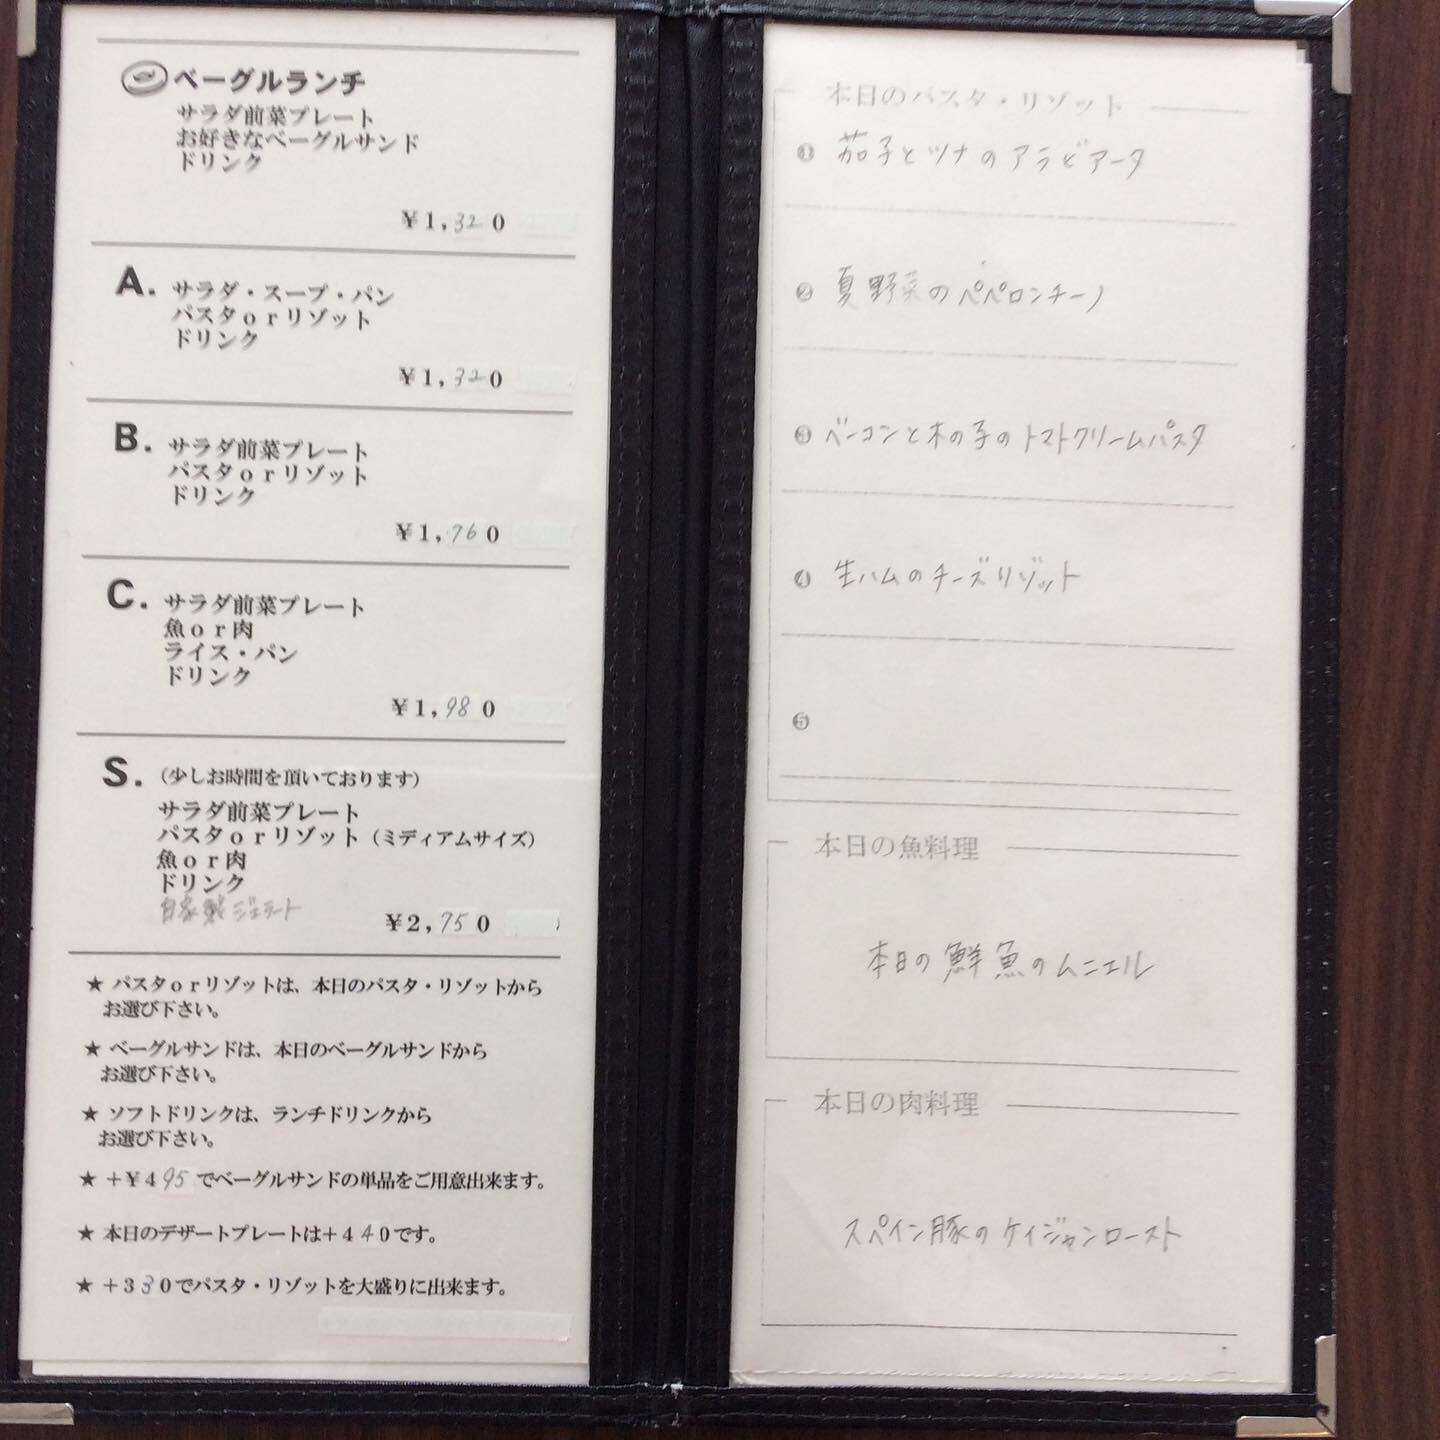 ベーグルランチ
サラダ前菜プレート
お好きなベーグルサンド
ドリンク
¥1,320
A. サラダ・スープ・パン
パスタorリゾット
ドリンク
¥1,320
B. サラダ前菜プレート
パスタorリゾット
ドリンク
¥1,760
C. サラダ前菜プレート
魚or肉
ライス・パン
ドリンク
¥1,980
S. (少しお時間を頂いております)
サラダ前菜プレート
パスタorリゾット(ミディアムサイズ)
魚or肉
ドリンク
自家製ジェラート
¥2,750
★ パスタorリゾットは、本日のパスタ・リゾットから
お選び下さい。
★ ベーグルサンドは、本日のベーグルサンドから
お選び下さい。
★ ソフトドリンクは、ランチドリンクから
お選び下さい。
★ +¥495でベーグルサンドの単品をご用意出来ます。
★ 本日のデザートプレートは+440です。
★ +330でパスタ・リゾットを大盛りに出来ます。
本日のパスタ・リゾット
❶ 茄子とツナのアラビアータ
❷ 夏野菜のペペロンチーノ
❸ ベーコンと木の子のトマトクリームパスタ
❹ 生ハムのチーズリゾット
❺
本日の魚料理
本日の鮮魚のムニエル
本日の肉料理
スペイン豚のケイジャンロースト